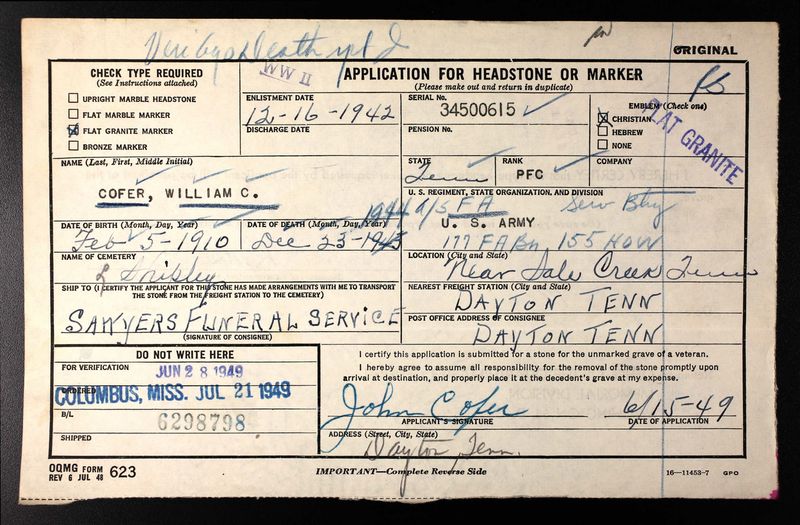 Death rptd
WW II
ORIGINAL
CHECK TYPE REQUIRED
(See Instructions attached)
UPRIGHT MARBLE HEADSTONE
FLAT MARBLE MARKER
FLAT GRANITE MARKER
BRONZE MARKER
APPLICATION FOR HEADSTONE OR MARKER
(Please make out and return in duplicate)
ENLISTMENT DATE
12-16-1942
DISCHARGE DATE
SERIAL No.
34500615
PENSION No.
EMBLEM (Check one)
CHRISTIAN
HEBREW
NONE
FLAT GRANITE
NAME (Last, First, Middle Initial)
COFER, WILLIAM C.
STATE
Tenn
RANK
PFC
COMPANY
U. S. REGIMENT, STATE ORGANIZATION, AND DIVISION
FA Serv Btry
U. S. ARMY
177 FA Bn 155 HOW
DATE OF BIRTH (Month, Day, Year)
Feb 5-1910
DATE OF DEATH (Month, Day, Year)
1944
Dec 23-1945
NAME OF CEMETERY
LOCATION (City and State)
Near Sale Creek Tenn
SHIP TO (I CERTIFY THE APPLICANT FOR THIS STONE HAS MADE ARRANGEMENTS WITH ME TO TRANSPORT THE STONE FROM THE FREIGHT STATION TO THE CEMETERY)
SAWYERS FUNERAL SERVICE
(SIGNATURE OF CONSIGNEE)
NEAREST FREIGHT STATION (City and State)
DAYTON TENN
POST OFFICE ADDRESS OF CONSIGNEE
DAYTON TENN
DO NOT WRITE HERE
FOR VERIFICATION
JUN 28 1949
ORDERED
COLUMBUS, MISS. JUL 21 1949
B/L
6298798
SHIPPED
I certify this application is submitted for a stone for the unmarked grave of a veteran.
I hereby agree to assume all responsibility for the removal of the stone promptly upon arrival at destination, and properly place it at the decedent's grave at my expense.
John Cofer
6/15-49
APPLICANT'S SIGNATURE
DATE OF APPLICATION
ADDRESS (Street, City, State)
Dayton, Tenn.
OQMG FORM
REV 6 JUL 48
623
IMPORTANT—Complete Reverse Side
16—11453-7 GPO